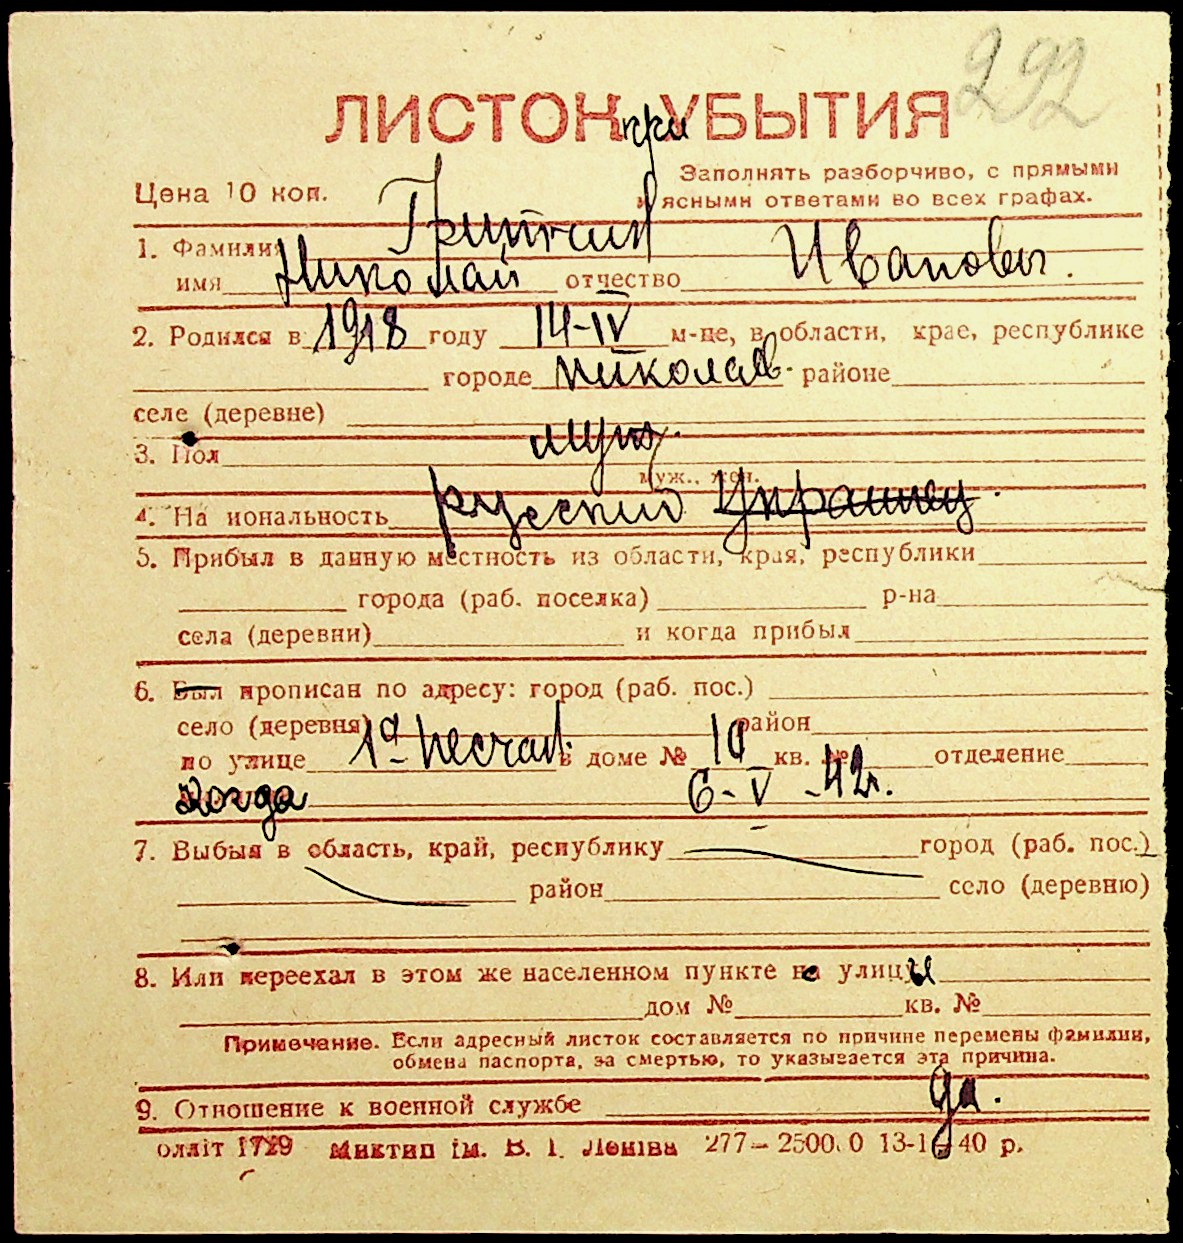 292
ЛИСТОК при УБЫТИЯ
Заполнять разборчиво, с прямыми
Цена 10 коп. и ясными ответами во всех графах.
1. Фамилия
имя Николай отчество Иванович.
2. Родился в 1918 году 14-IV м-це, в области, крае, республике
городе Николаев. районе
селе (деревне)
3. Пол муж.
муж., жен.
4. Национальность русский украинец.
5. Прибыл в данную местность из области, края, республики
города (раб. поселка) р-на
села (деревни) и когда прибыл
6. Был прописан по адресу: город (раб. пос.)
село (деревня) район
по улице 1а Песчан. в доме № 10 кв. № отделение
когда 6-V-42г.
7. Выбыл в область, край, республику город (раб. пос.)
район село (деревню)
8. Или переехал в этом же населенном пункте не улицы
дом № кв. №
Примечание. Если адресный листок составляется по причине перемены фамилии,
обмена паспорта, за смертью, то указывается эта причина.
9. Отношение к военной службе да.
олліт 1729 Миктип ім. В. І. Леніна 277—2500.0 40 р.